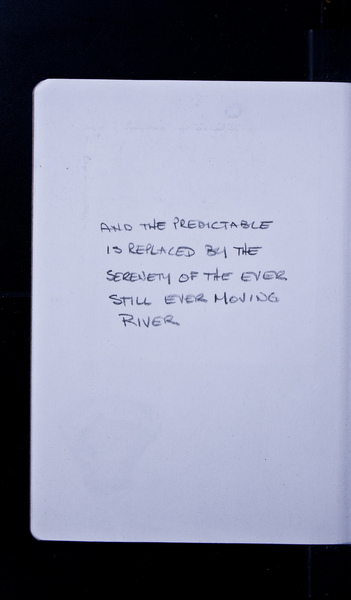 AND THE PREDICTABLE
IS REPLACED BY THE
SERENETY OF THE EVER
STILL EVER MOVING
RIVER